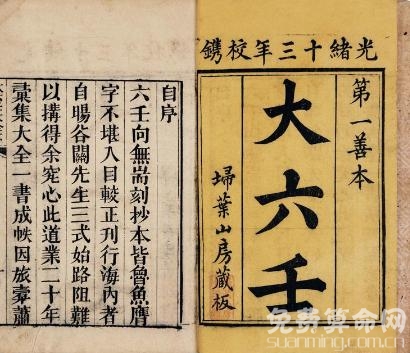 光緒十三年校鐫
第一善本
大六壬
埽葉山房藏板
自序
六壬向無耑刻抄本皆魯魚鷹
字不堪入目較正刊行海內者
自暘谷關先生三式始路阻難
以搆得余寃心此道業二十年
彚集大全一書成帙因旅橐蕭
免费算命网